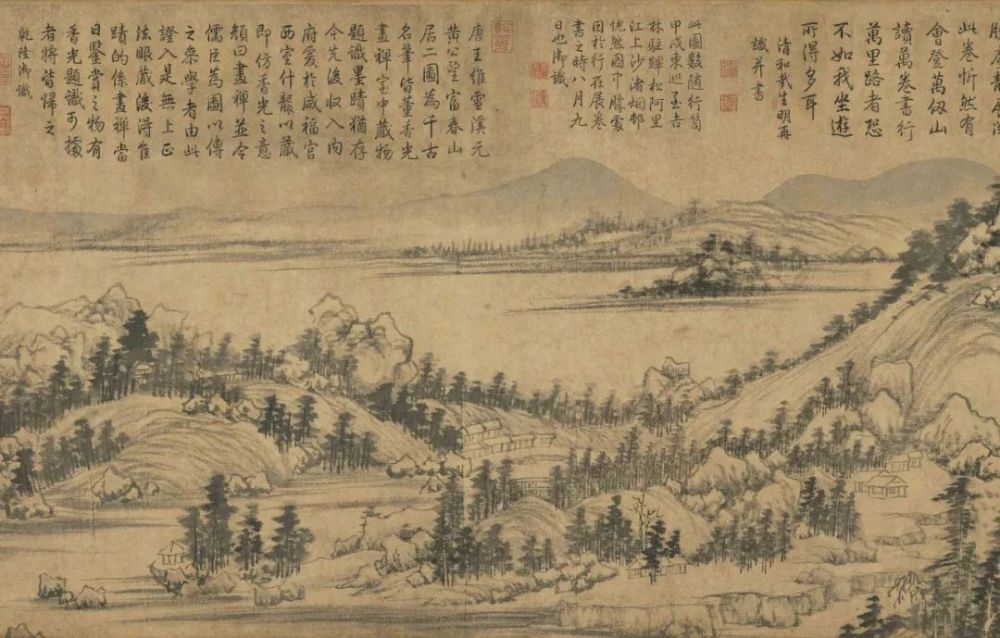 此卷忻然有
會登萬仞山
讀萬卷書行
萬里路者恐
不如我坐遊
所得多耳
清和哉生明再
識并書
此圖數隨行笥
甲戌東巡至吉
林駐蹕松阿里
江上沙渚烟邨
恍然圖中勝處
因於行在展卷
書之時八月九
日也御識
唐王維雪溪元
黃公望富春山
居二圖為千古
名筆皆董香光
畫禪室中藏物
題識墨蹟猶存
今先後收入內
府爰於咸福宮
西室什襲以藏
即仿香光之意
額曰畫禪並令
儒臣為圖以傳
之叅學者由此
證入是無上正
法眼藏後淂佳
蹟的係畫禪當
日鑒賞之物有
香光題識可據
者將皆歸之
乾隆御識